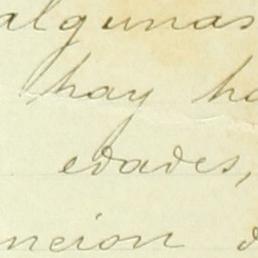 algunas
hay ha
edades,
ncion d